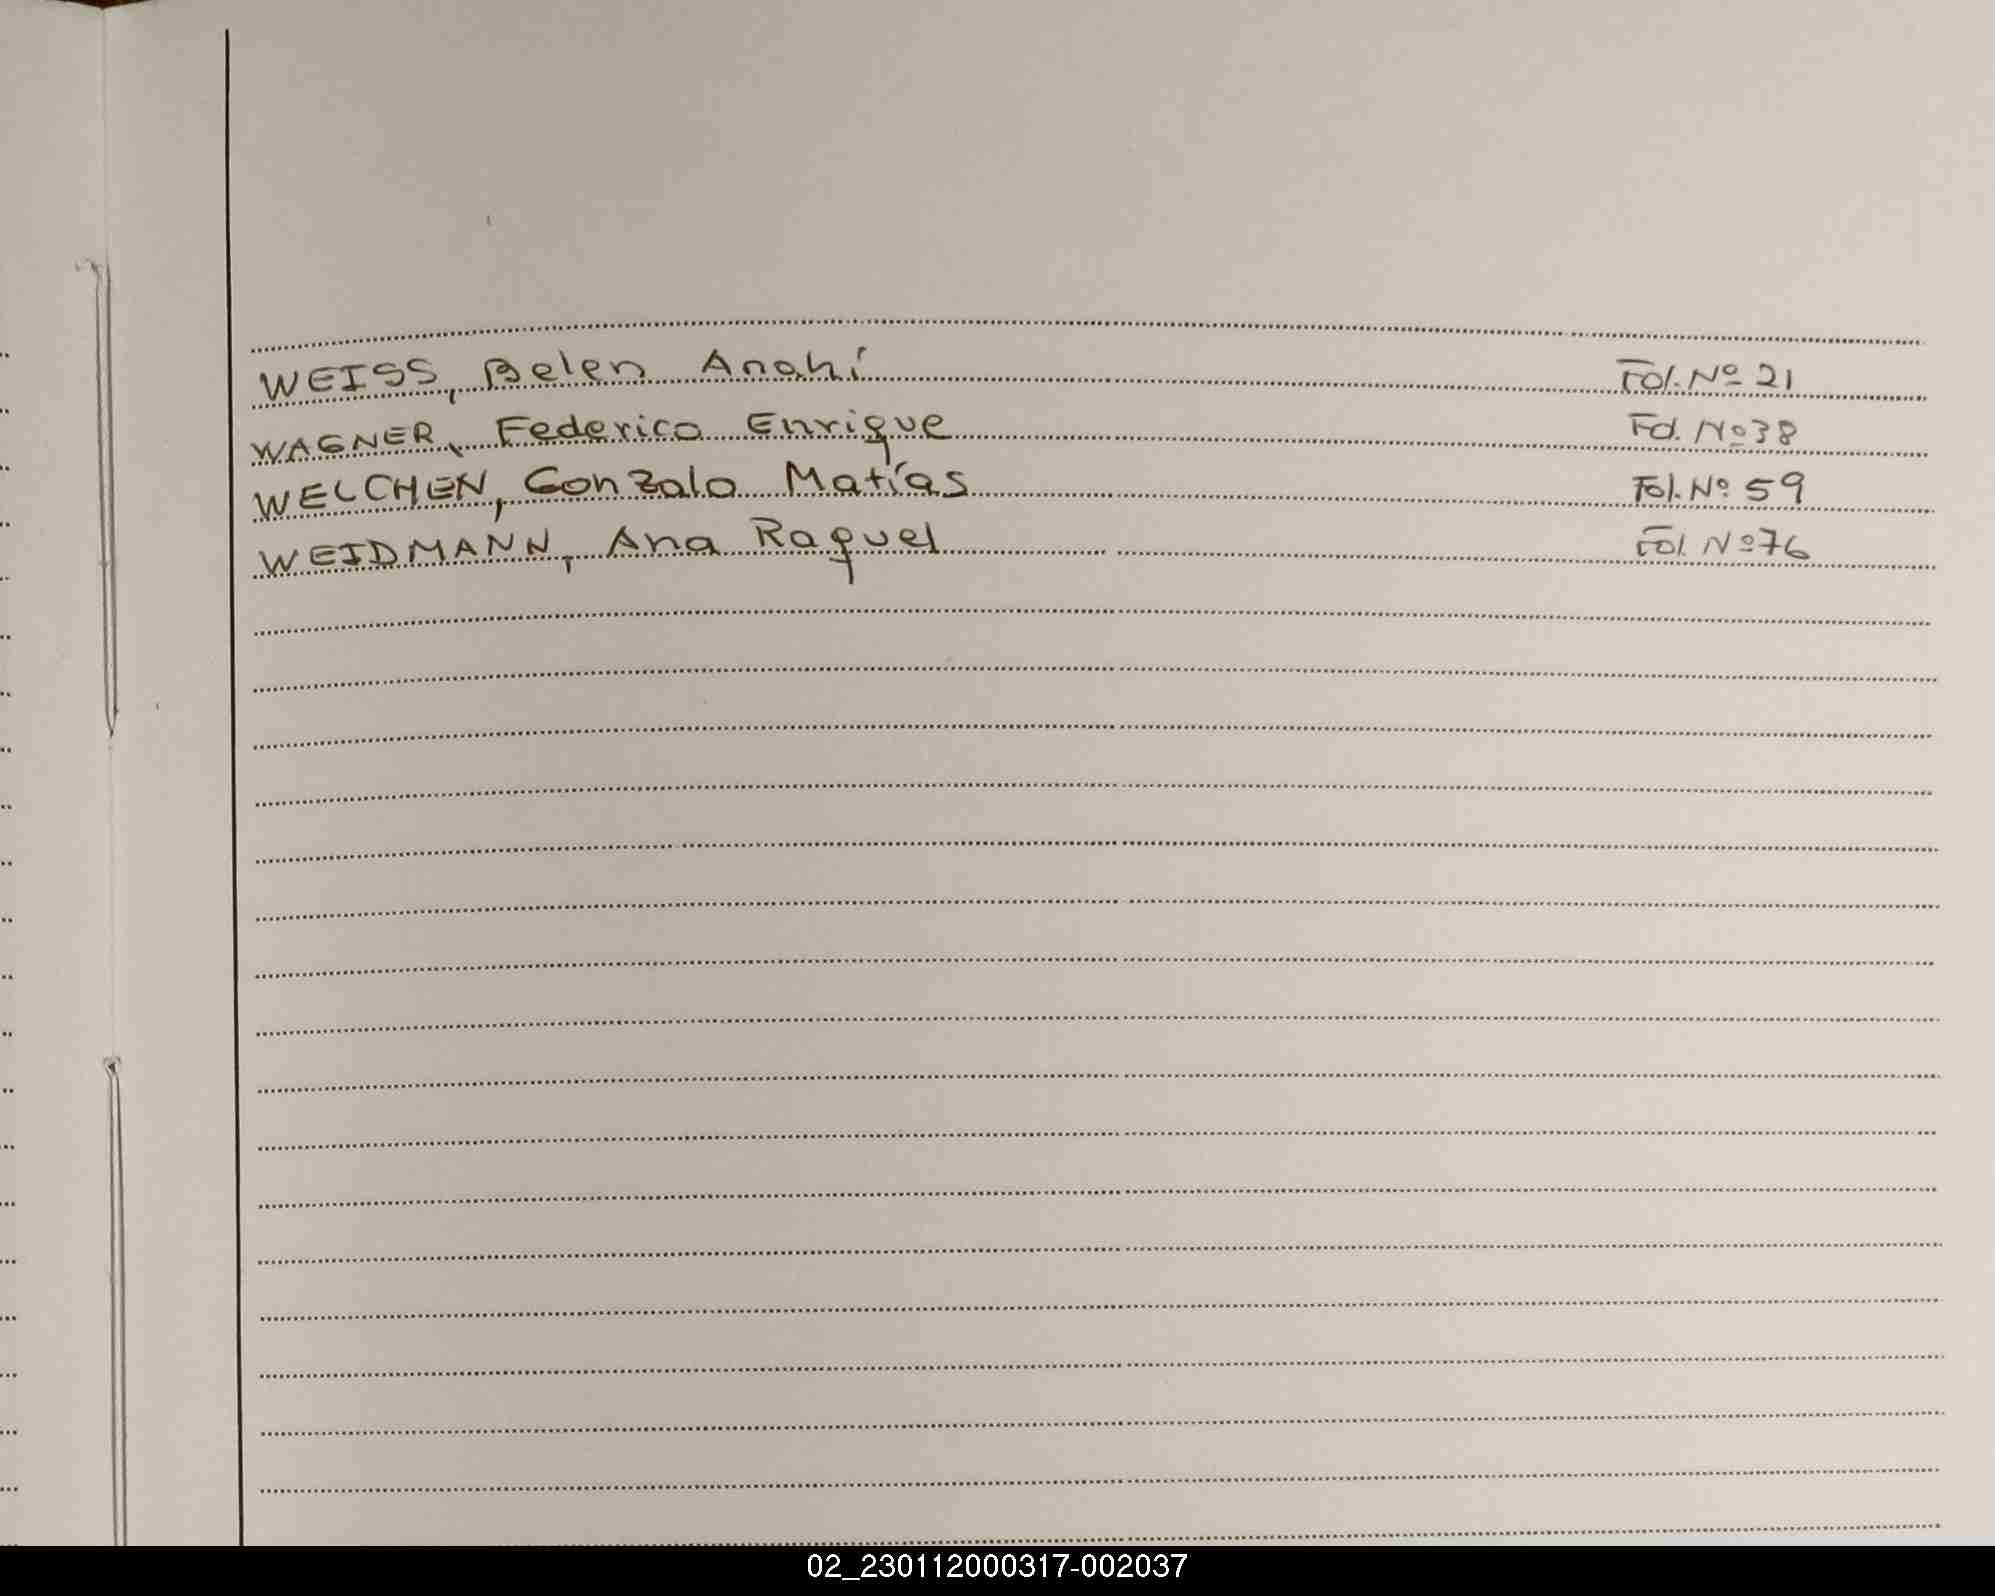 WEISS, Belen Anahí Fol. Nº 21
WAGNER, Federico Enrique Fol. Nº 38
WELCHEN, Gonzalo Matías Fol. Nº 59
WEIDMANN, Ana Raquel Fol. Nº 76
02_230112000317-002037